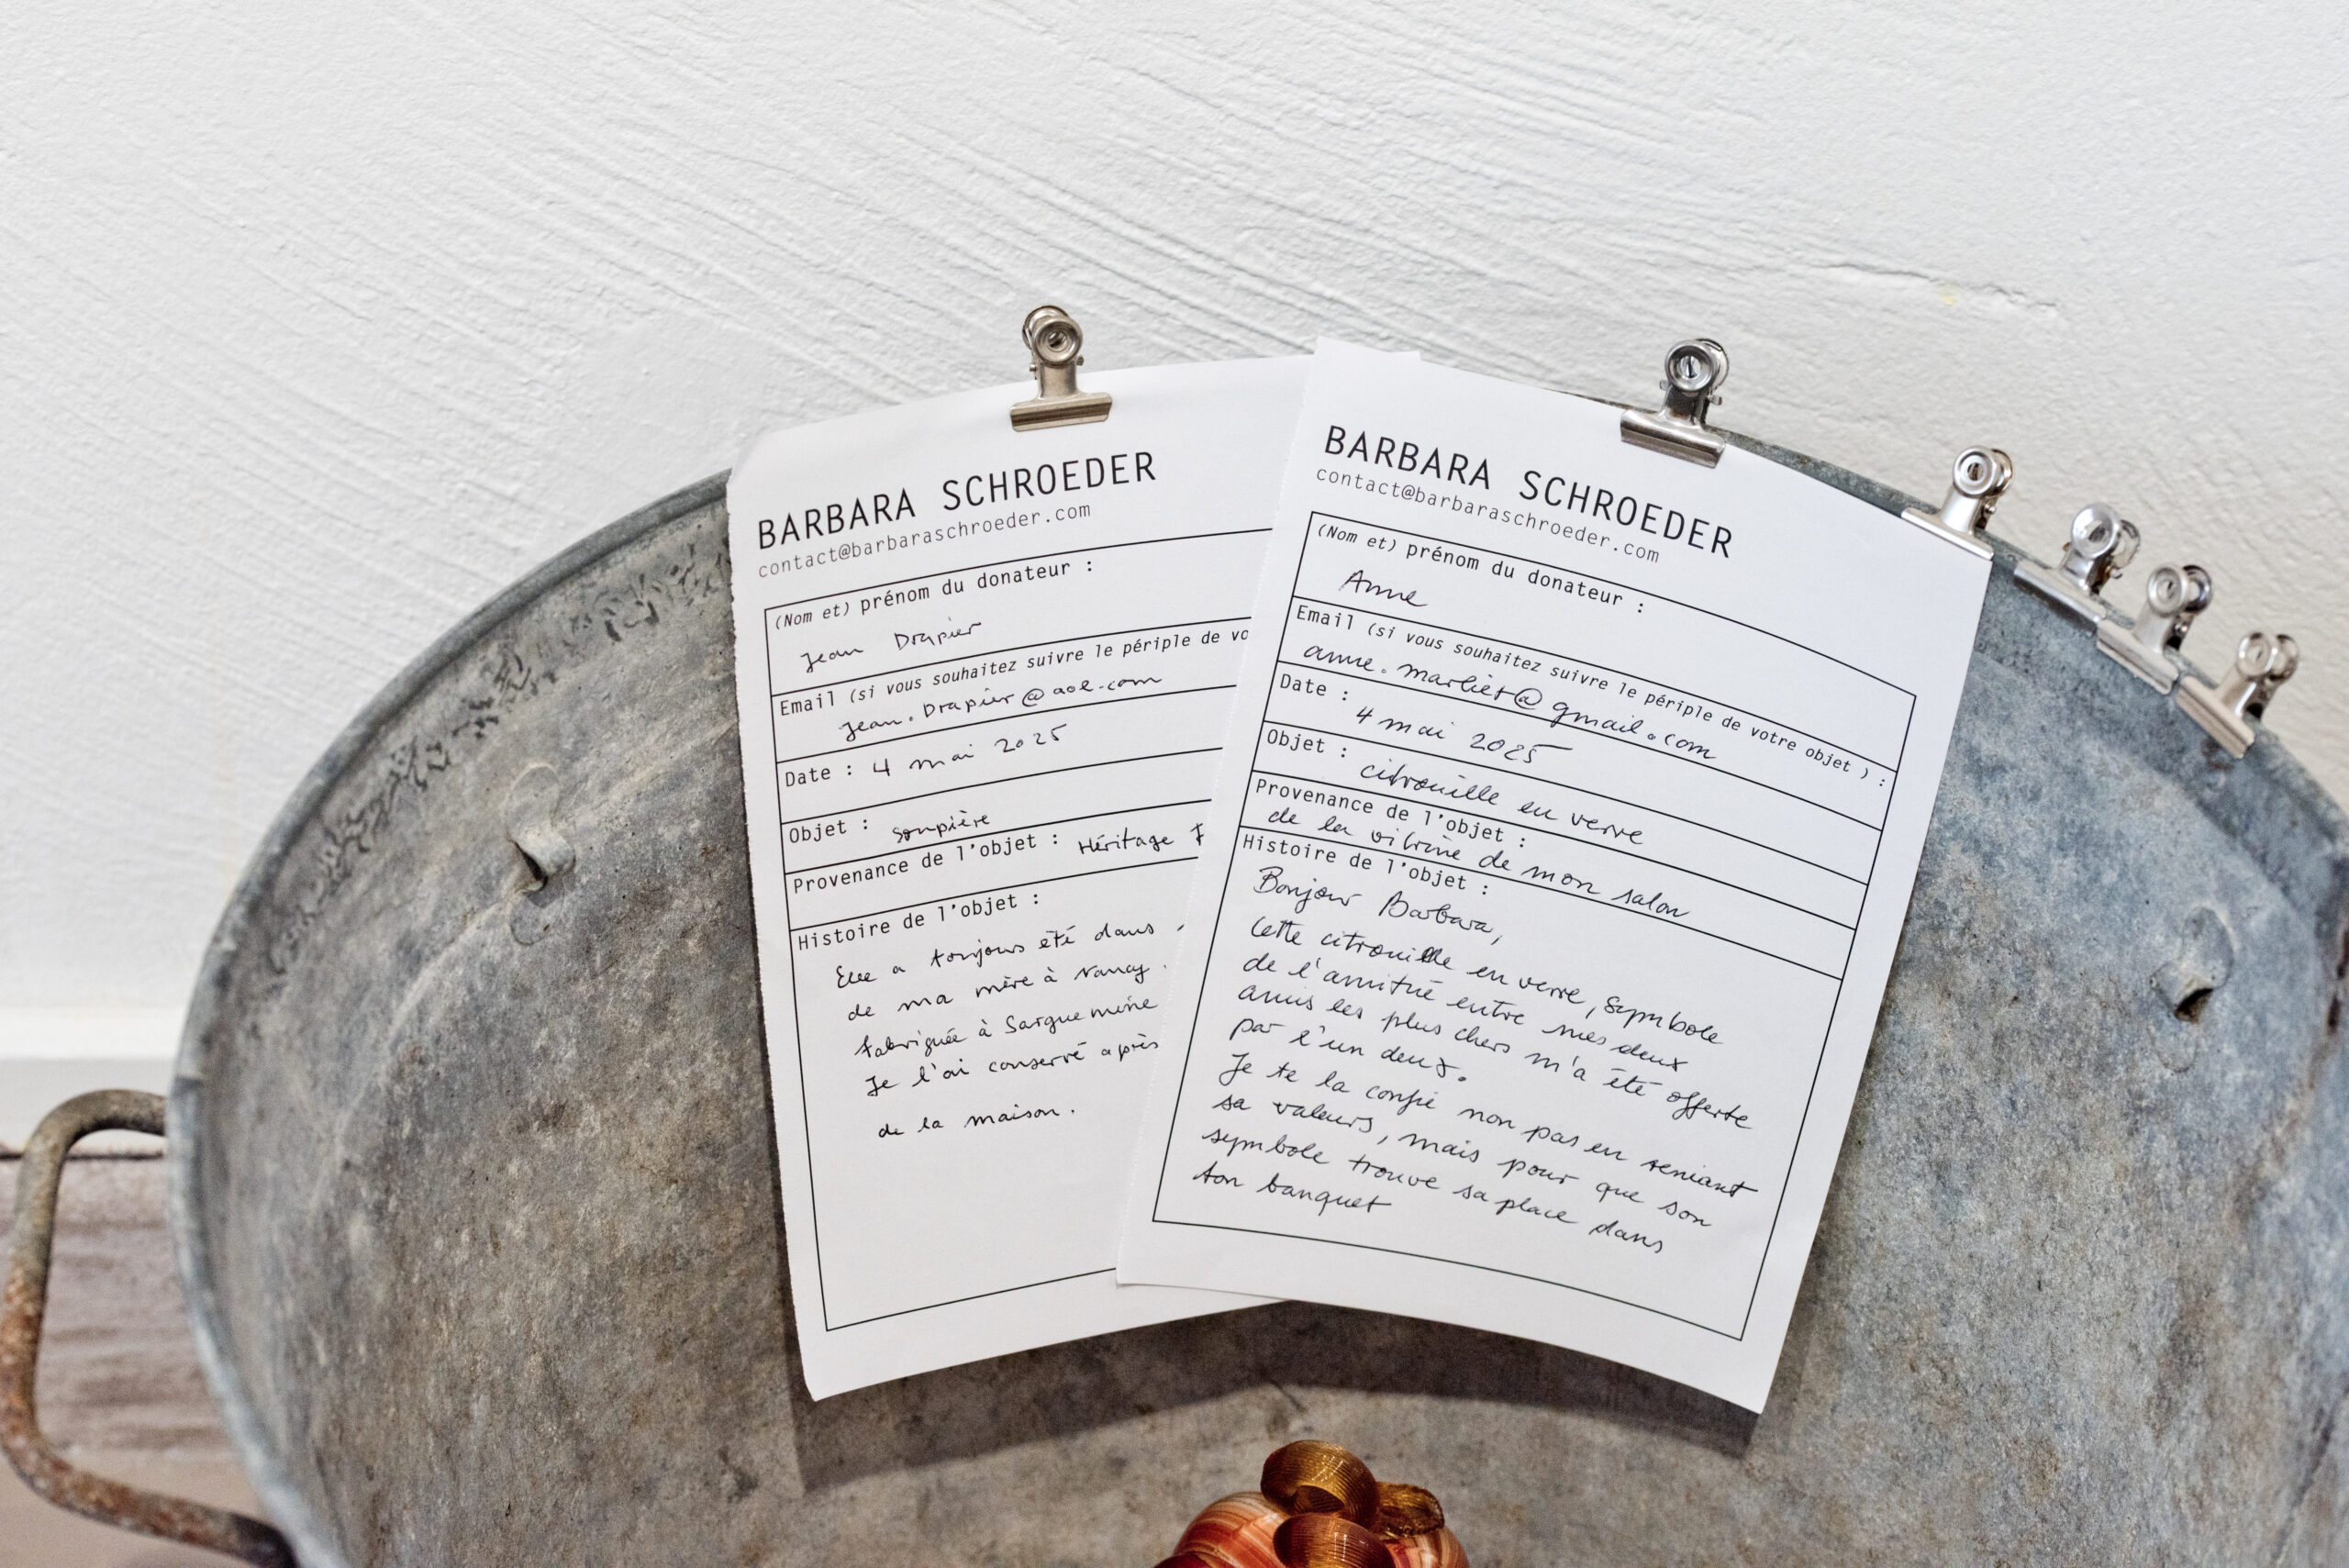 BARBARA SCHROEDER
contact@barbaraschroeder.com
(Nom et) prénom du donateur :
Jean Drapier
Email (si vous souhaitez suivre le périple de vo
Jean.Drapier@aol.com
Date : 4 mai 2025
Objet : soupière
Provenance de l'objet : Héritage
Histoire de l'objet :
Elle a toujours été dans
de ma mère à Nancy.
fabriquée à Sarguemine
Je l'ai conservé après
de la maison.
BARBARA SCHROEDER
contact@barbaraschroeder.com
(Nom et) prénom du donateur :
Anne
Email (si vous souhaitez suivre le périple de votre objet ) :
anne.marlier@gmail.com
Date :
4 mai 2025
Objet :
citrouille en verre
Provenance de l'objet :
de la vitrine de mon salon
Histoire de l'objet :
Bonjour Barbara,
Cette citrouille en verre, symbole
de l'amitié entre mes deux
amis les plus chers m'a été offerte
par l'un deux.
Je te la confie non pas en reniant
sa valeurs, mais pour que son
symbole trouve sa place dans
ton banquet